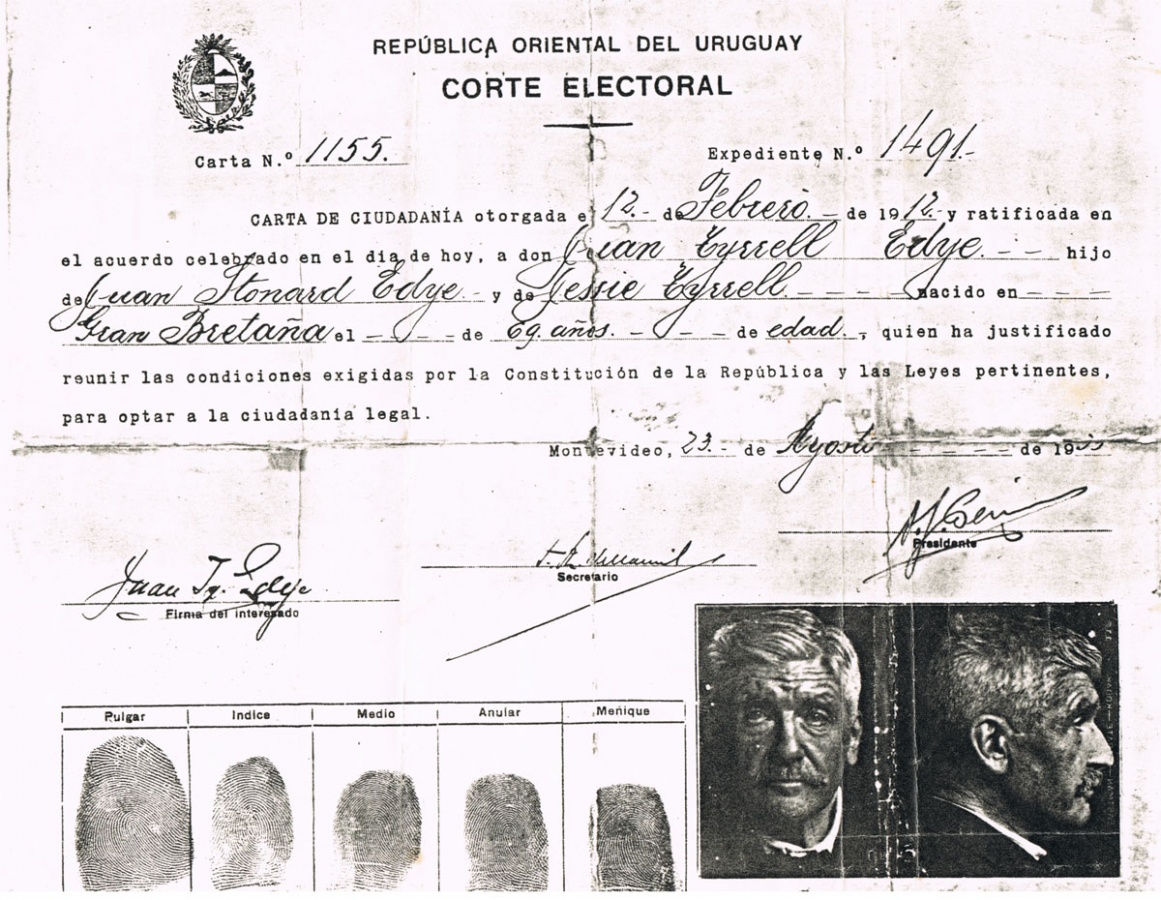 REPÚBLICA ORIENTAL DEL URUGUAY
CORTE ELECTORAL
Carta N.º 1155.
Expediente N.º 1491.-
CARTA DE CIUDADANÍA otorgada el 12.- de Febrero. - de 1912.- y ratificada en
el acuerdo celebrado en el día de hoy, a don Juan Tyrrell Edye. - - hijo
de Juan Stonard Edye - y de Jessie Tyrrell. - - - - nacido en - - -
Gran Bretaña el - - - de 69. años. - - - de edad. -, quien ha justificado
reunir las condiciones exigidas por la Constitución de la República y las Leyes pertinentes,
para optar a la ciudadanía legal.
Montevideo, 23.- de Agosto - - - - - de 19
Presidente
Secretario
Juan Ty. Edye
Firma del interesado
Pulgar Indice Medio Anular Meñique